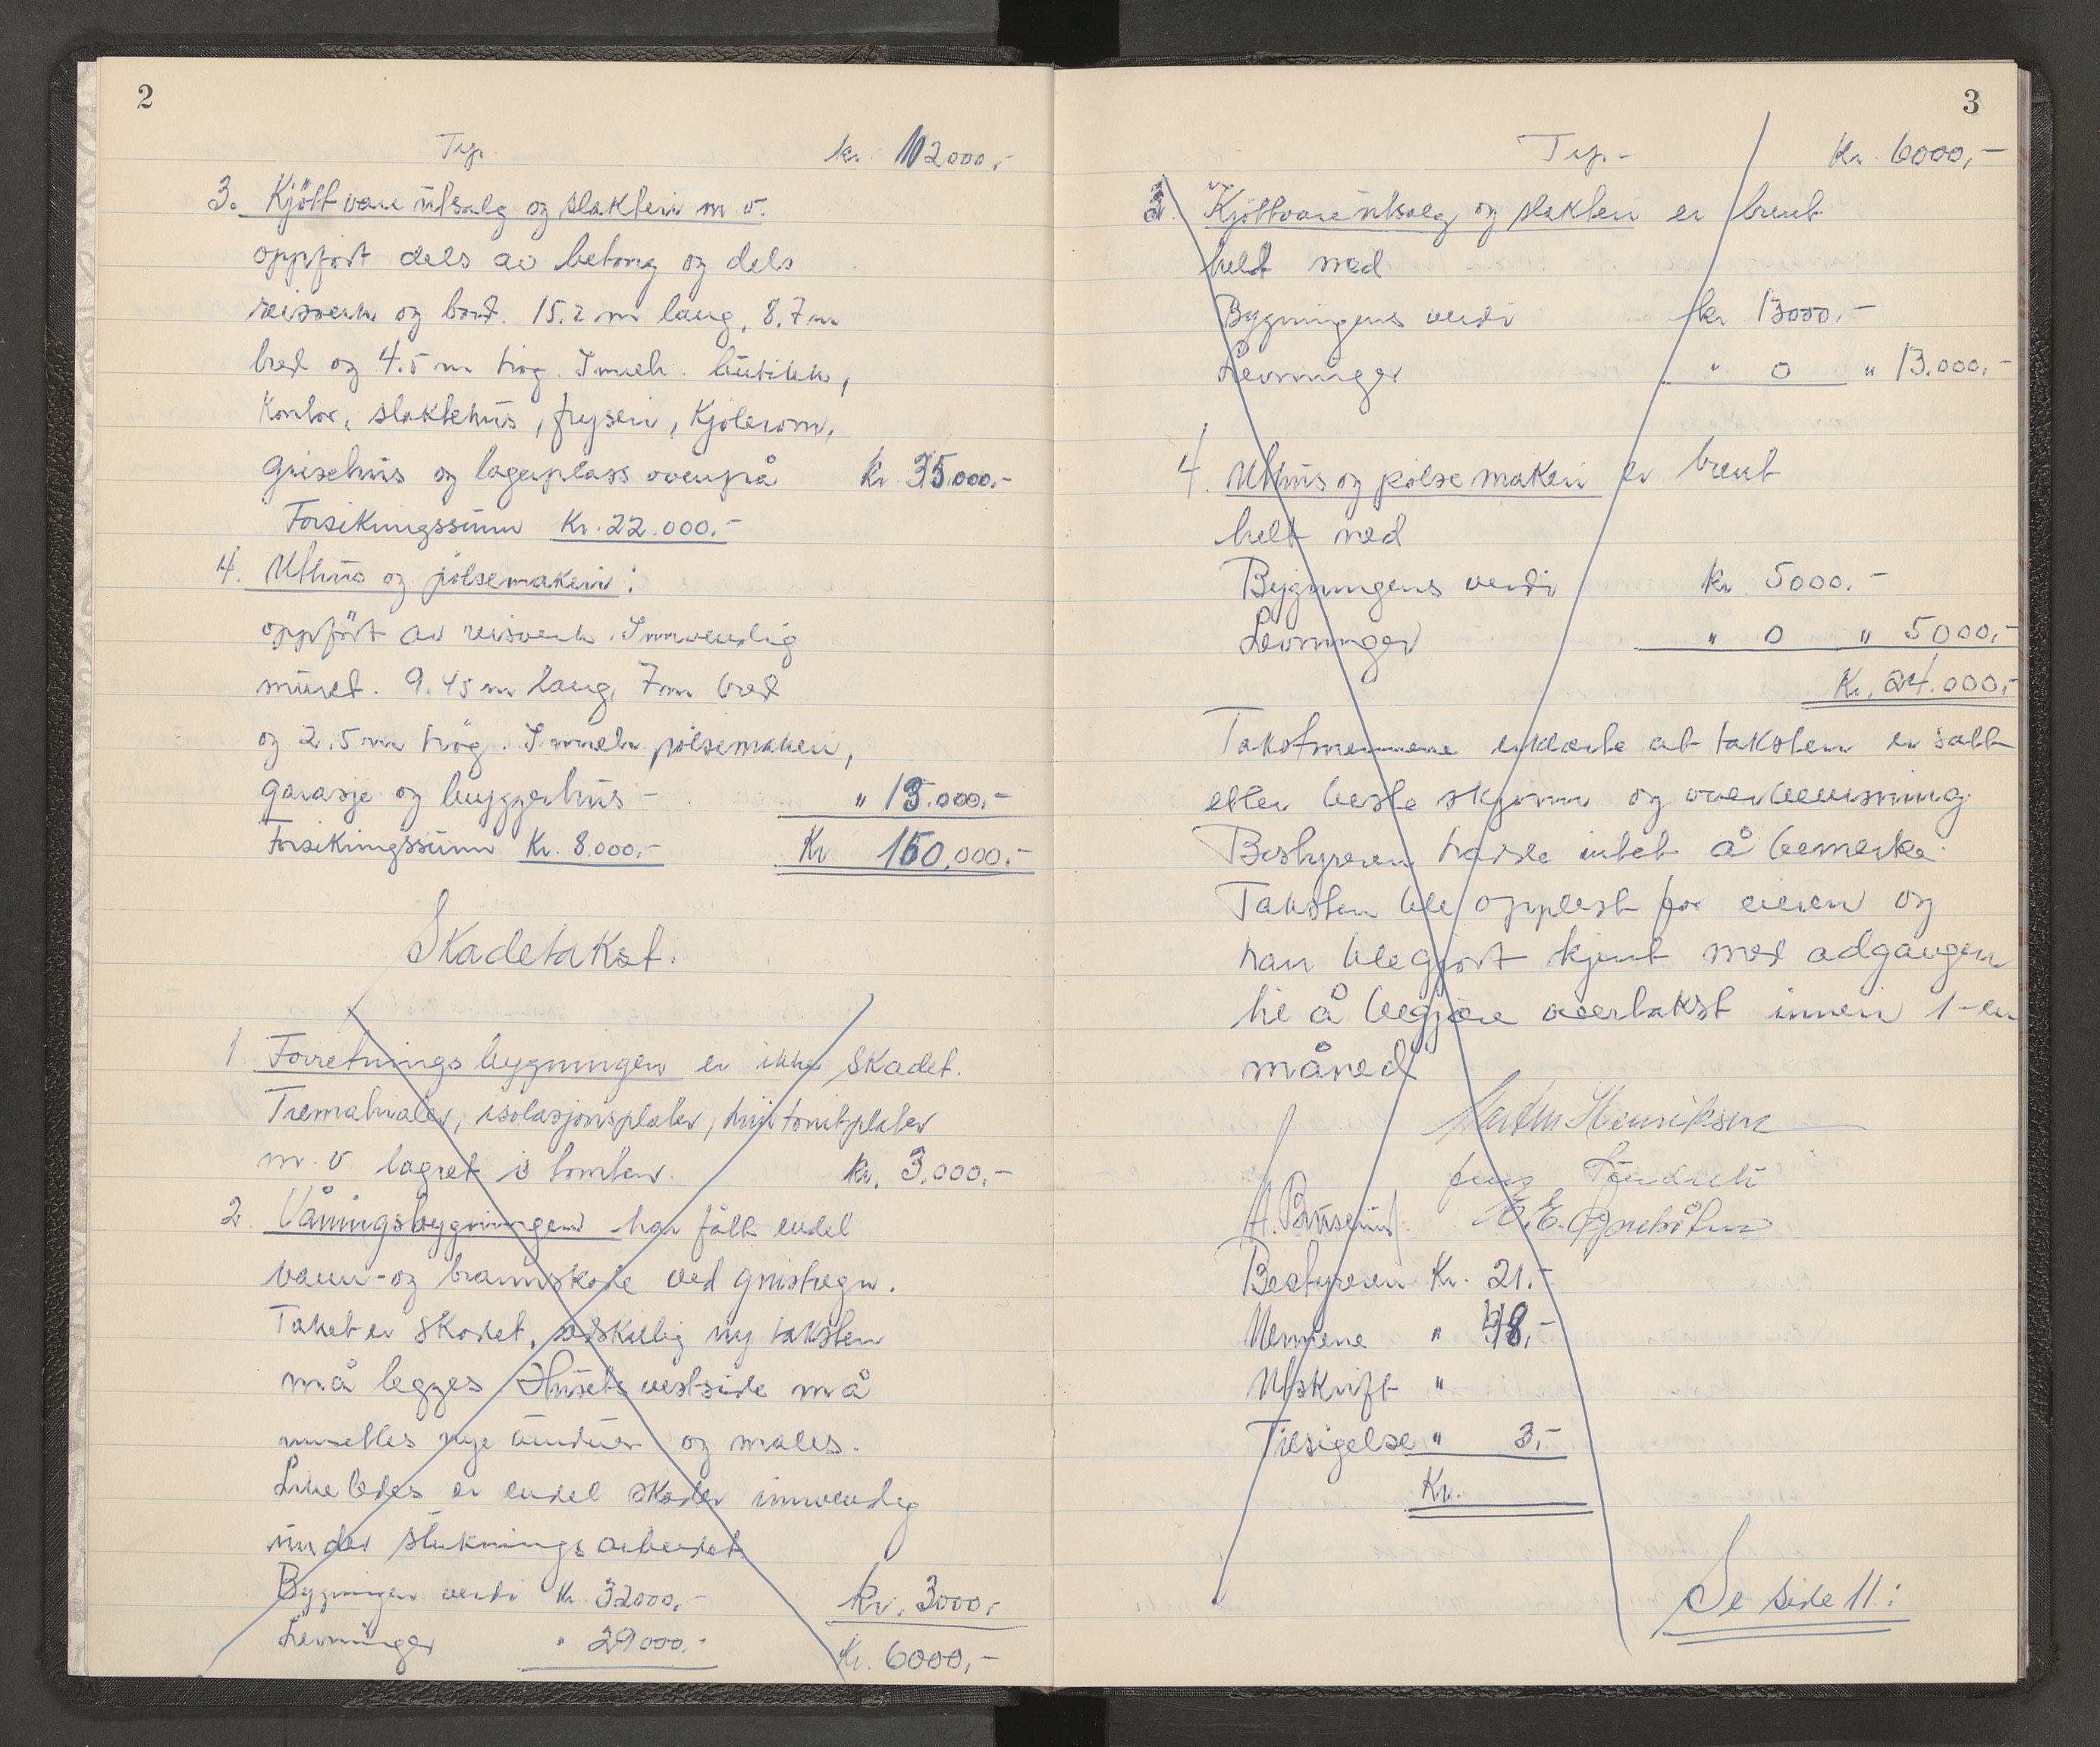 2
Trp. kr. 112000,-
3. Kjöttvare utsalg og slakteri m v.
oppført dels av betong og dels
reisverk og bord. 15.2 m lang, 8.7 m
bred og 4.5 m høg. Inneh. butikk,
Kontor, slaktehus, fryseri, Kjølerom,
grisehus og lagerplass ovenpå kr. 35.000.-
Forsikringssum Kr. 22.000.-
4. Uthus og pølsemakeri:
oppført av reisverk. Innvendig
muret. 9.45 m lang, 7 m bred
og 2.5 m høg. Inneh. pølsemakeri,
garasje og bryggerhus - " 13.000.-
Forsikringssum Kr. 8.000,- Kr 160.000.-
Skadetakst.
1. Forretningsbygningen er ikke skadet.
Trematerialer, isolasjonsplater, huntonitplater
m. v. lagret i tomten. kr. 3.000,-
2. Våningsbygningen har fått endel
vann- og brannskade ved gnistregn.
Taket er skadet, adskillig ny taksten
må legges. Husets vestside må
innsettes nye vinduer og males.
Likeledes er endel skader innvendig
under slukningsarbeidet.
Bygningen verdi Kr. 32000,- Kr. 3000,-
Levninger " 29000,- Kr. 6000,-
3
Trp- Kr. 6000,-
3. Kjöttvareutsalg og slakteri er brent
helt ned
Bygningens verdi kr 13000.-
Levninger " 0 " 13.000,-
4. Uthus og pølsemakeri er brent
helt ned
Bygningens verdi kr 5000.-
Levninger " 0 " 5000,-
Kr. 24.000,-
Takstmennene erklærte at taksten er satt
etter beste skjønn og overbevisning.
Bestyreren hadde intet å bemerke.
Taksten ble opplest for eieren og
han ble gjort kjent med adgangen
til å begjære overtakst innen 1-en
måned
Martin Henriksen
Jens
A. E.
Bestyreren Kr. 21.-
Mennene " 48,-
Utskrift "
Tilsigelse " 3,-
Kr.
Se side 11: